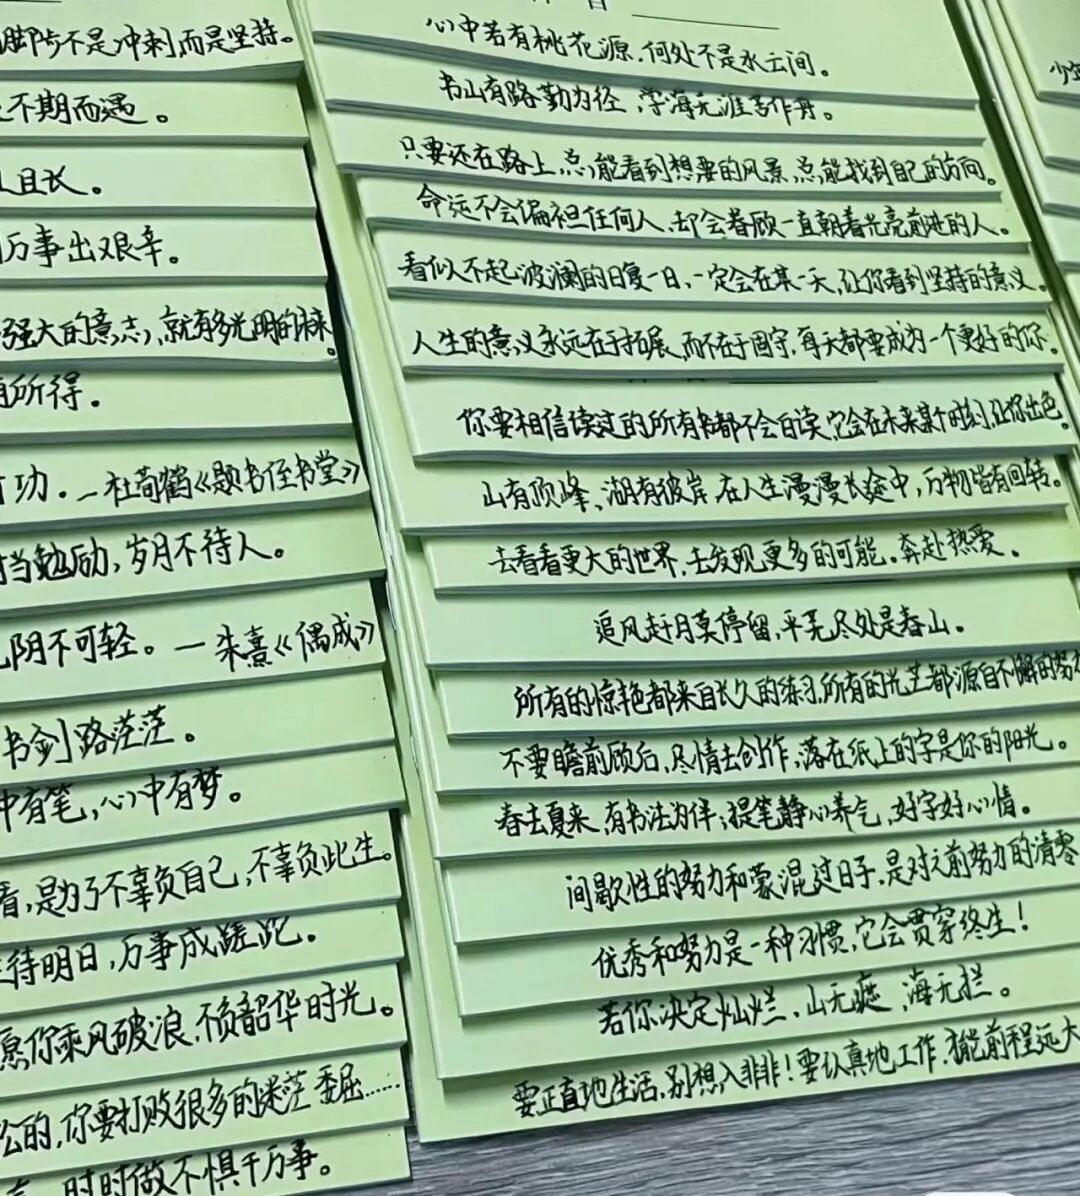 脚步不是冲刺,而是坚持。
不期而遇。
且长。
万事出艰辛。
强大的意志,就有多光明的未来。
有所得。
功。—杜荀鹤《题书侄书堂》
当勉励,岁月不待人。
阴不可轻。—朱熹《偶成》
书剑路茫茫。
中有笔,心中有梦。
看,是为了不辜负自己,不辜负此生。
待明日,万事成蹉跎。
愿你乘风破浪,不负韶华时光。
的,你要打败很多的迷茫 委屈……
时时做不惧千万事。
心中若有桃花源,何处不是水云间。
书山有路勤为径,学海无涯苦作舟。
只要还在路上,总能看到想要的风景,总能找到自己的方向。
命运不会偏袒任何人,却会眷顾一直朝着光亮前进的人。
看似不起波澜的日复一日,一定会在某一天,让你看到坚持的意义。
人生的意义永远在于拓展,而不在于固守,每天都要成为一个更好的你。
你要相信读过的所有书都不会白读,它会在未来某个时刻,让你出色。
山有顶峰、湖有彼岸,在人生漫漫长途中,万物皆有回转。
去看看更大的世界,去发现更多的可能。奔赴热爱。
追风赶月莫停留,平芜尽处是春山。
所有的惊艳都来自长久的练习,所有的光芒都源自不懈的努力
不要瞻前顾后,尽情去创作,落在纸上的字是你的阳光。
春去夏来,有书法为伴;提笔静心养气,好字好心情。
间歇性的努力和蒙混过日子,是对之前努力的清零
优秀和努力是一种习惯,它会贯穿终生!
若你决定灿烂,山无遮,海无拦。
要正直地生活,别想入非非!要认真地工作,才能前程远大
少年